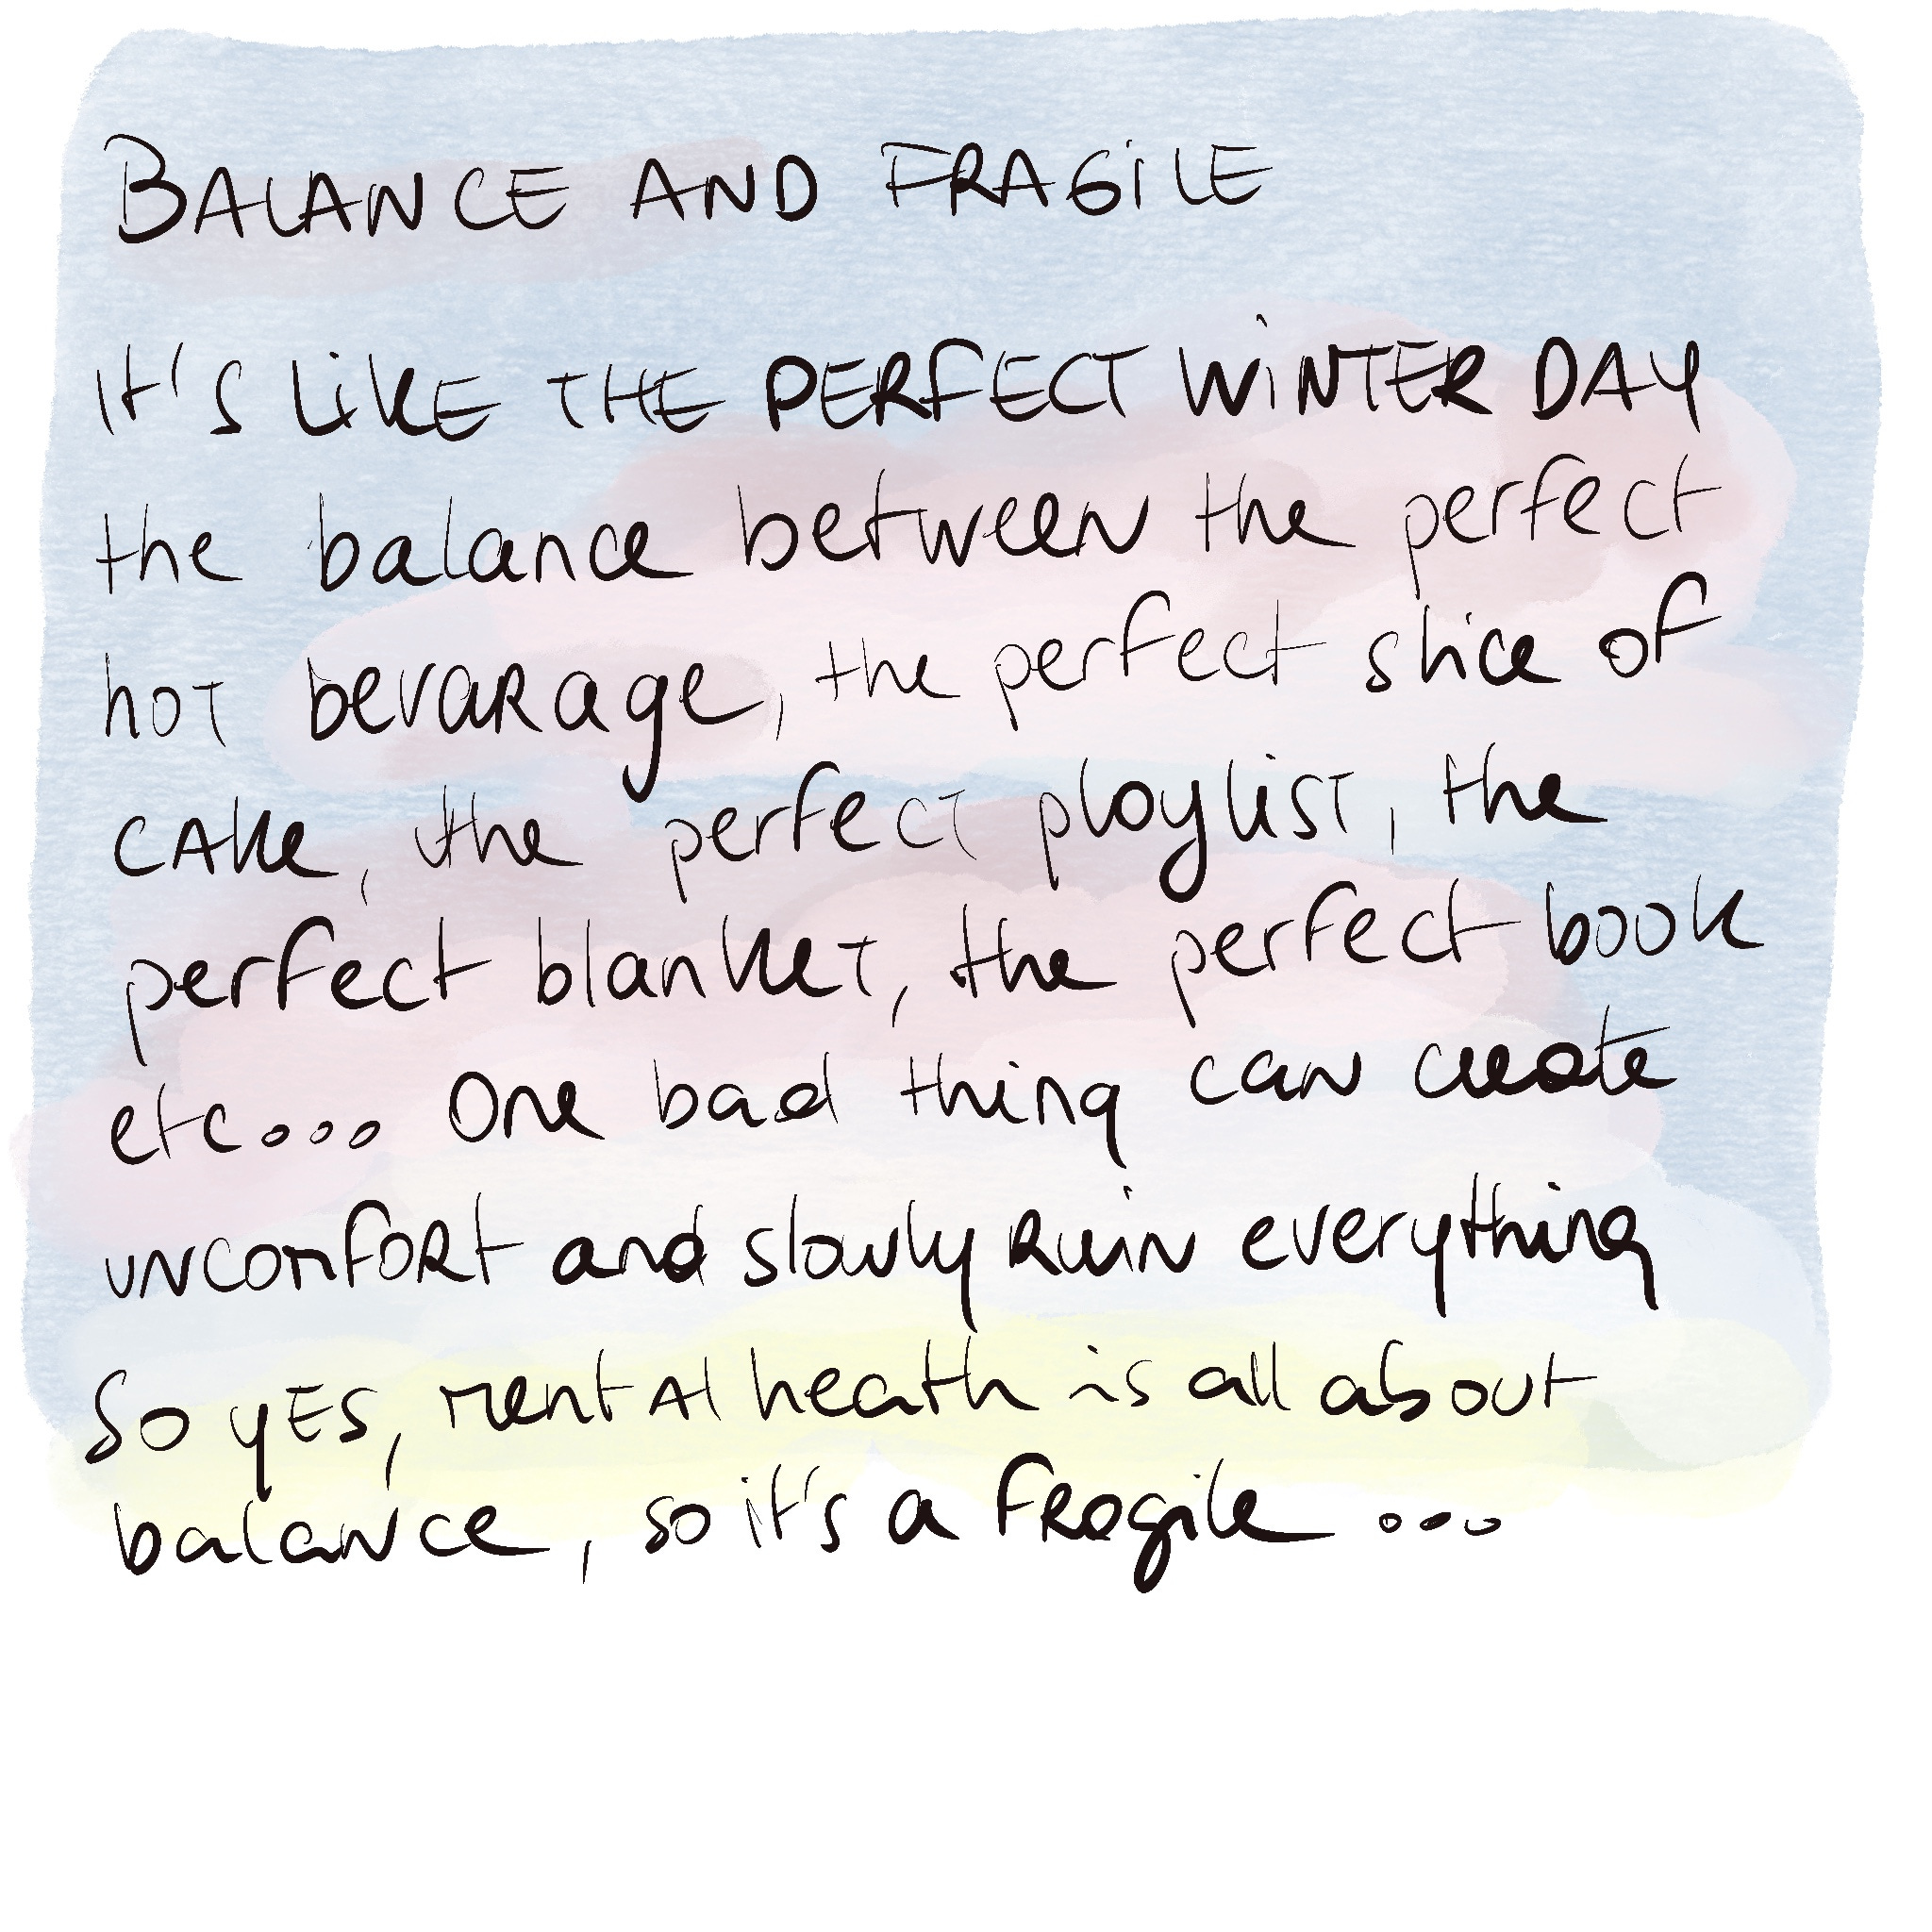 BALANCE AND FRAGILE
It's like THE PERFECT WINTER DAY
the balance between the perfect
hot bevarage, the perfect slice of
cake, the perfect playlist, the
perfect blanket, the perfect book
etc... One bad thing can create
uncomfort and slowly Ruin everything
So yes, mental heath is all about
balance, so it's a fragile ...